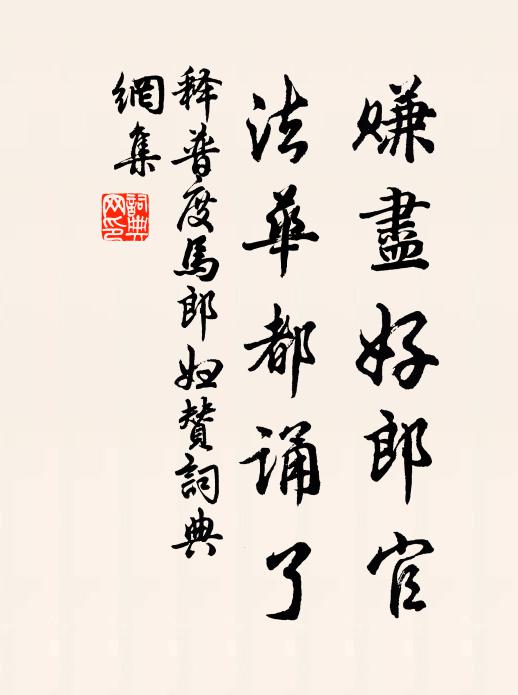 賺盡好郎官
法華都誦了
释普度馬郎婦赞詞典
網集
詞典
网印